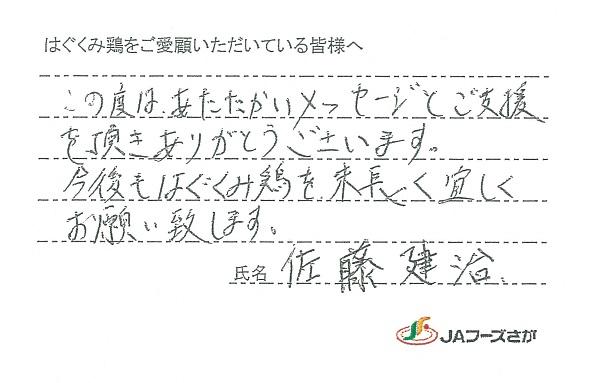 はぐくみ鶏をご愛顧いただいている皆様へ
この度は、あたたかいメッセージとご支援
を頂きありがとうございます。
今後もはぐくみ鶏を末長く宜しく
お願い致します。
氏名 佐藤建治
JAフーズさが